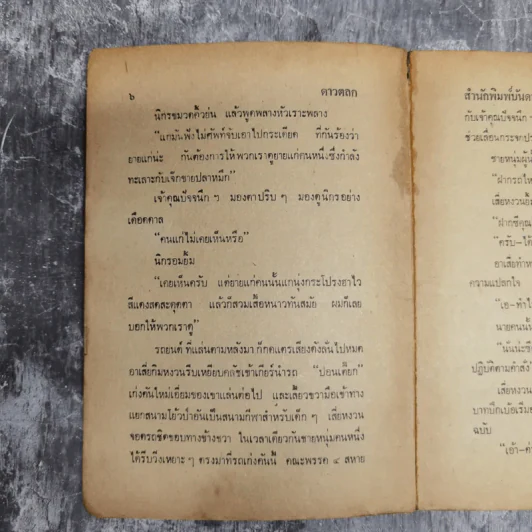 ๖ ดาวตลก
นิกรขมวดคิ้วย่น แล้วพูดพลางหัวเราะพลาง
"แกมันฟังไม่ศัพท์จับเอาไปกระเดียด ที่กันร้องว่า
ยายแก่น่ะ กันต้องการให้พวกเราดูยายแก่คนหนึ่งซึ่งกำลัง
ทะเลาะกับเจ๊กขายปลาหมึก"
เจ้าคุณปัจจนึก ฯ มองตาปริบ ๆ มองดูนิกรอย่าง
เดือดดาล
"คนแก่ไม่เคยเห็นหรือ"
นิกรอมยิ้ม
"เคยเห็นครับ แต่ยายแก่คนนั้นแกนุ่งกระโปรงฮาไว
สีแดงสดสะดุดตา แล้วก็สวมเสื้อหนาวทันสมัย ผมก็เลย
บอกให้พวกเราดู"
รถยนต์ ที่แล่นตามหลังมา ก็กดแตรเสียงดังลั่นไปหมด
อาเสี่ยกิมหงวนรีบเหยียบคลัชเข้าเกียร์นำรถ "ปอนเตี๊ยก"
เก๋งคันใหม่เอี่ยมของเขาแล่นต่อไป และเลี้ยวขวามือเข้าทาง
แยกสนามโอ้วป่าอันเป็นสนามกีฬาสำหรับเด็ก ๆ เสี่ยหงวน
จอดรถชิดขอบทางข้างขวา ในเวลาเดียวกันชายหนุ่มคนหนึ่ง
ได้รีบวิ่งเหยาะ ๆ ตรงมาที่รถเก๋งคันนี้ คณะพรรค ๔ สหาย
สำนักพิมพ์บันดา
กับเจ้าคุณปัจจนึก ฯ
ช่วยเลื่อนกระจก
ชายหนุ่มผู้
"ฝากรถไห
เสี่ยหงวนยิ้ม
"ฝากซีคุณ
"ครับ–ได้
อาเสี่ยทำห
ความแปลกใจ
"เอ–ทำไ
นายคนนั้
"นั่นน่ะซี
ปฏิบัติตามคำสั่ง
เสี่ยหงวน
บาทปึกเบ้อเริ่ม
ฉบับ
"เอ้า–